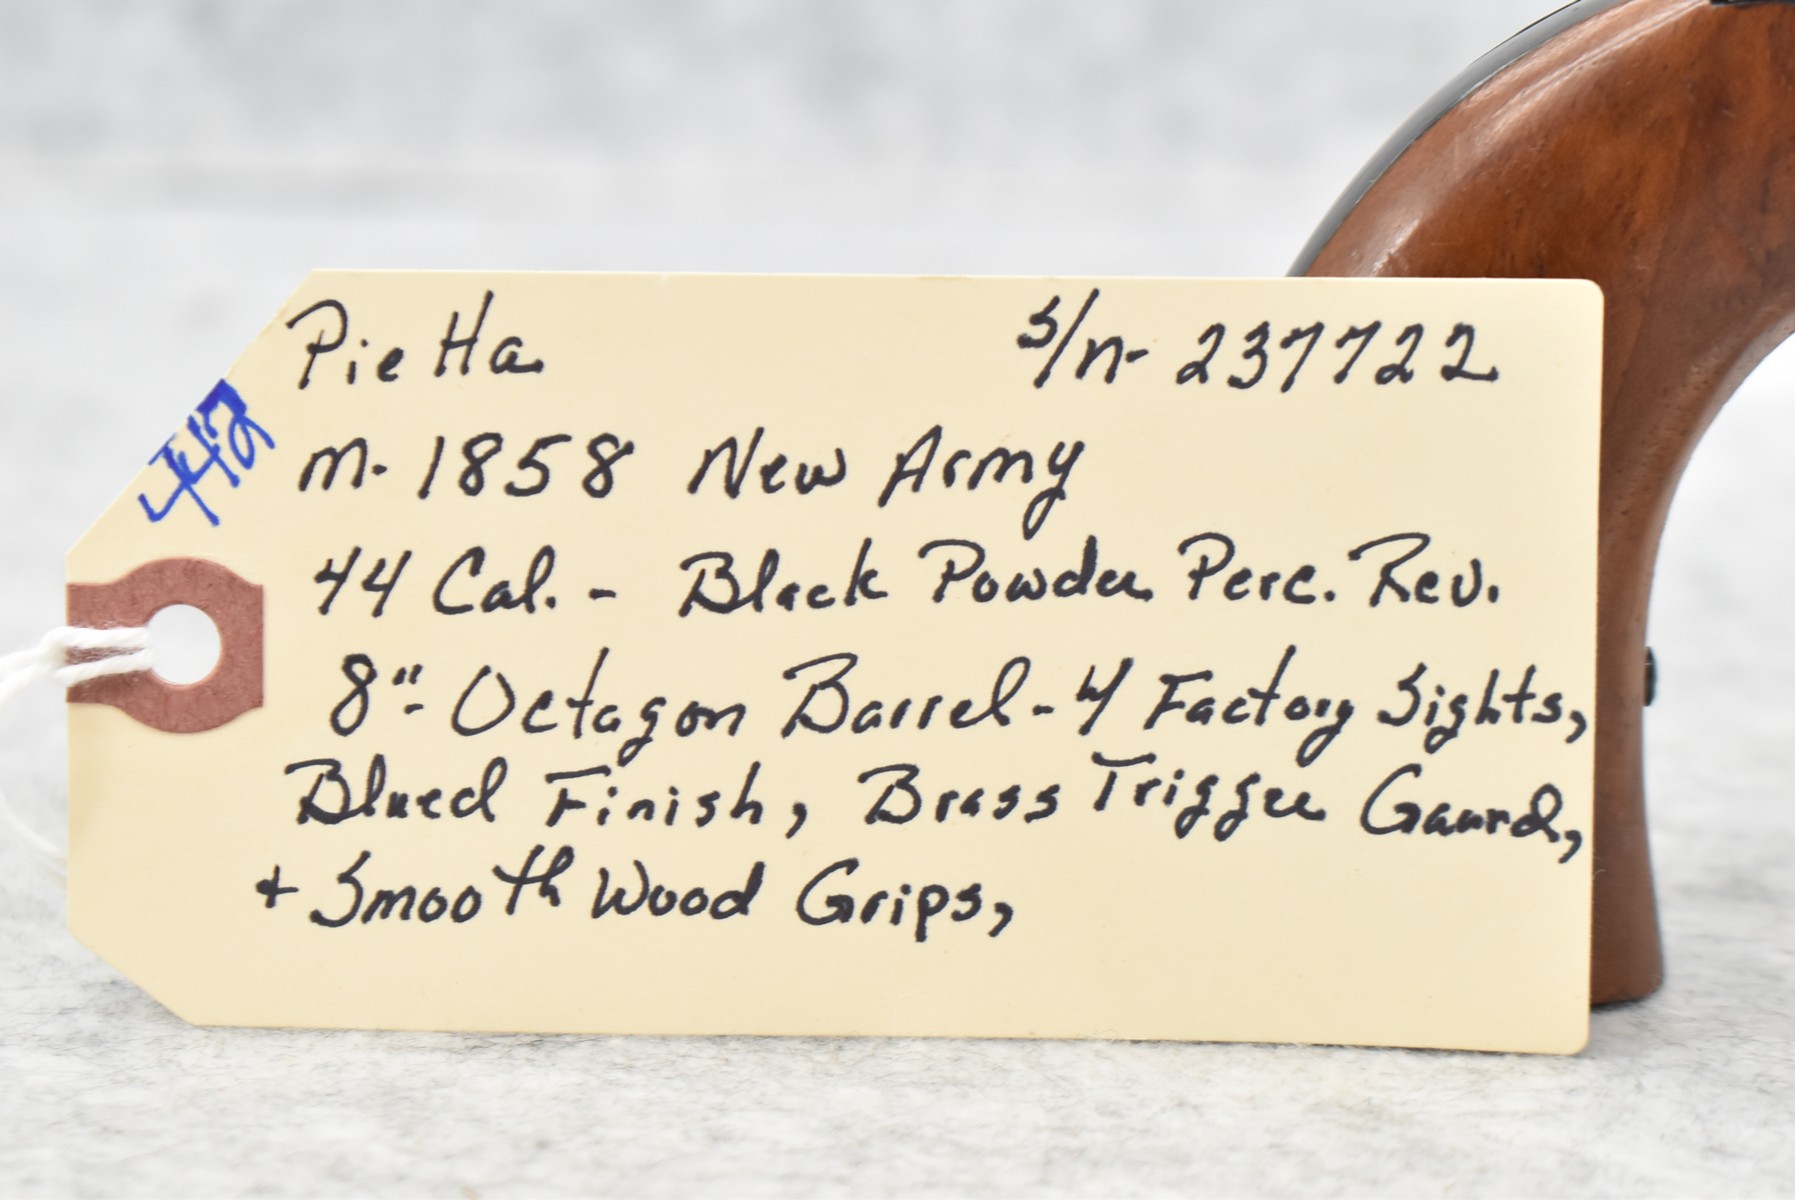 Pietta s/n- 237722
442
M- 1858 New Army
44 Cal. - Black Powder Perc. Rev.
8"- Octagon Barrel - 4 Factory Sights,
Blued Finish, Brass Trigger Gaurd,
+ Smooth Wood Grips,